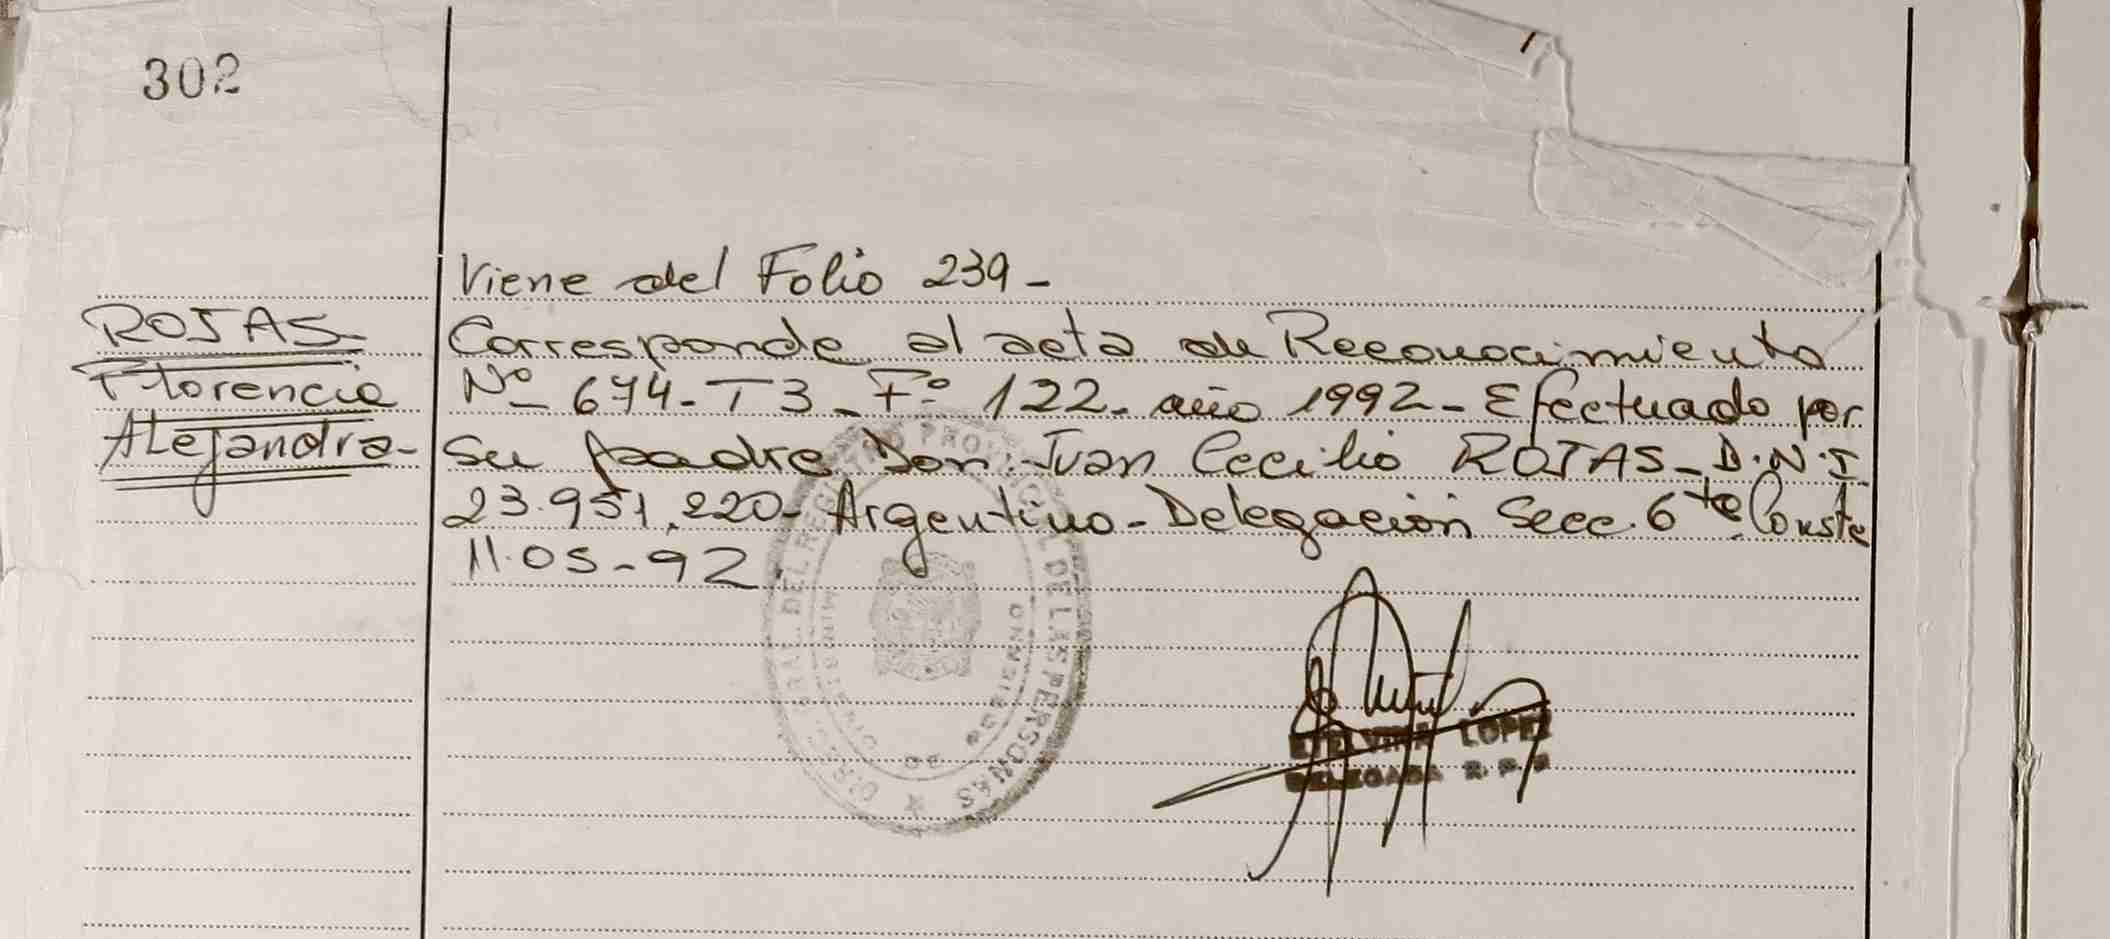 302
Viene del Folio 239-
ROJAS-
Florencia
Alejandra-
Corresponde al acta de Reconocimiento
Nº 674-T3-Fº 122. año 1992-Efectuado por
su padre Don: Juan Cecilio ROJAS-D.N.I
23.951.220- Argentino-Delegación Secc. 6ta Conste
11.05-92
DEL REGISTRO PROVINCIAL DE LAS PERSONAS
ETELVINA LOPEZ
DELEGADA R. P. P